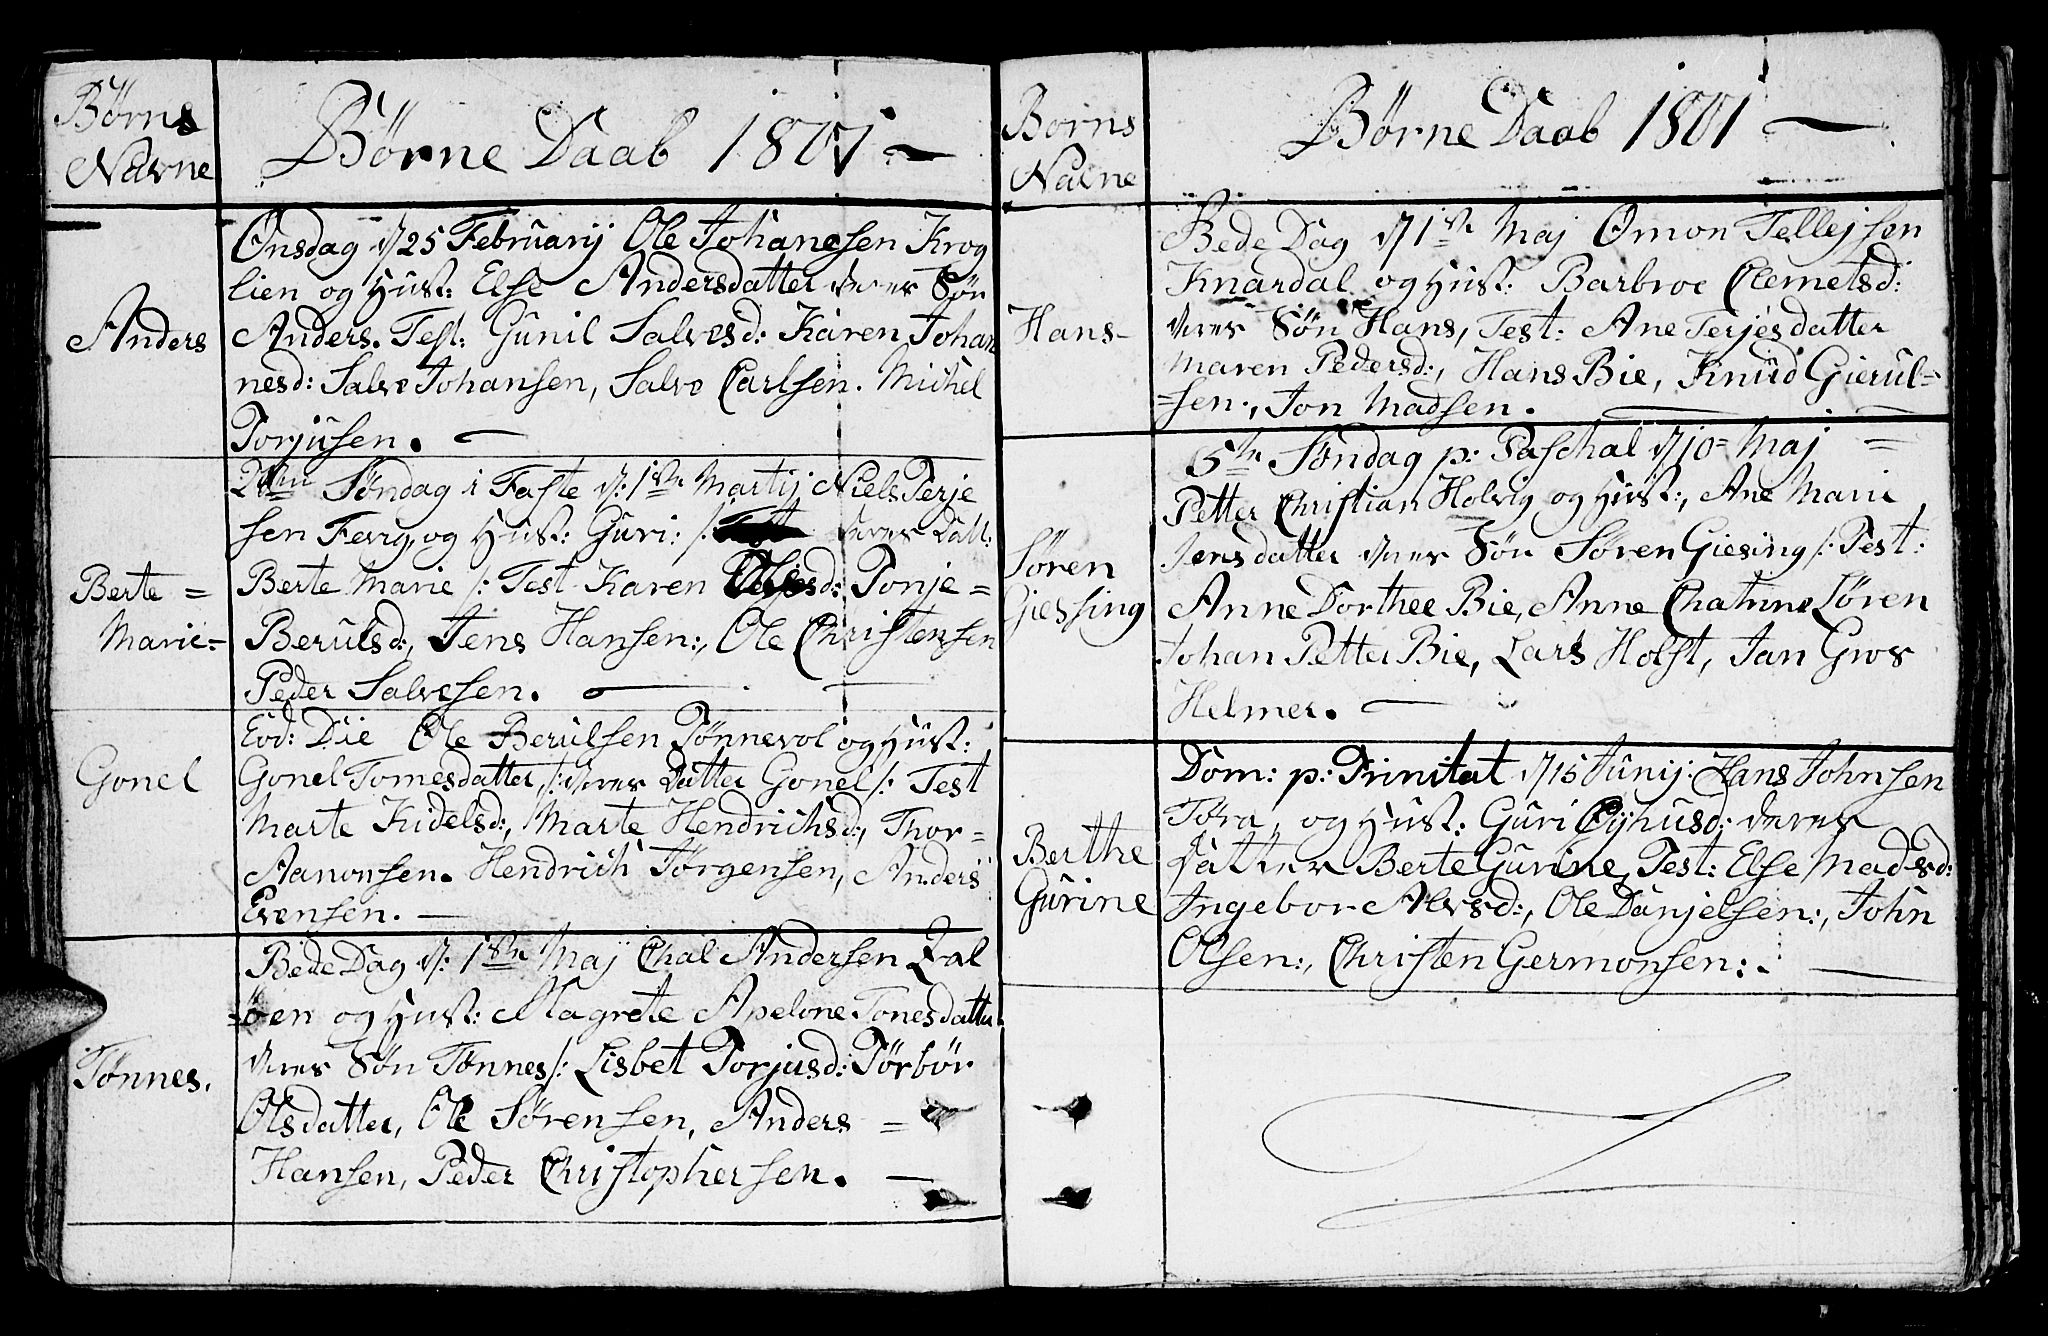 Børns
Navne
Børne Daab 1801.
Anders
Onsdag d/25 Februarij Ole Johanesen Krog
lien og Hust: Else Andersdatter deres Søn
Anders. Test: Gunil Salvesd: Karen Johan
nesd: Salve Johansen, Salve Carlsen. Michel
Torjusen.
Berte =
Marie-
2den Søndag i Faste d: 1ste Martij Niels Terje
sen Ferrg, og Hust: Guri: /: deres Datt:
Berte Marie /: Test Karen Olsd: Tonje =
Berulsd:, Jens Hansen:, Ole Christensen
Peder Salvesen.
Gonel
Eod: Die Ole Berulsen Tønnevol og Hust:
Gonel Tomesdatter /: deres Datter Gonel /: Test
Marte Kidelsd:, Marte Hendrichsd:, Thor=
Aanonsen. Hendrich Jørgensen, Anders
Evensen.
Tønnes.
Bede Dag d: 1ste Maj Chal Andersen Zal
=øen og Hust: Magrete Apelone Tonesdatter
deres Søn Tønnes /: Lisbet Torjusd: Tørbør
Olsdatter, Ole Sørensen, Anders =
Hansen, Peder Christophersen.
Børns
Navne
Børne Daab 1801
Hans-
Bede Dag d/1ste Maj Omon Tellejsen
Knardal og Hust: Barbroe Clemetsd:
deres Søn Hans, Test: Ane Terjesdatter
Maren Pedersd:, Hans Bie, Knud Gierul=
=sen., Jon Madsen.
Søren
Giessing
5te Søndag p: Paschal d/10= Maj =
Petter Christian Holvig og Hust:, Ane Marie
Jensdatter deres Søn Søren Giesing /: Test:
Anne Dorthee Bie, Anne Chatrine Løren
Johan Petter Bie, Lars Holst, Jan Gros
Helmer.
Berthe
Gurine
Dom: p: Trinitat d/15 Junij: Hans Johnsen
Tøra, og Hust: Guri Eyhusd: deres
Datter Berte Gurine, Test: Else Madsd:
Ingebor Alvsd:, Ole Danjelsen:, John
Olsen:, Christen Germonsen:.